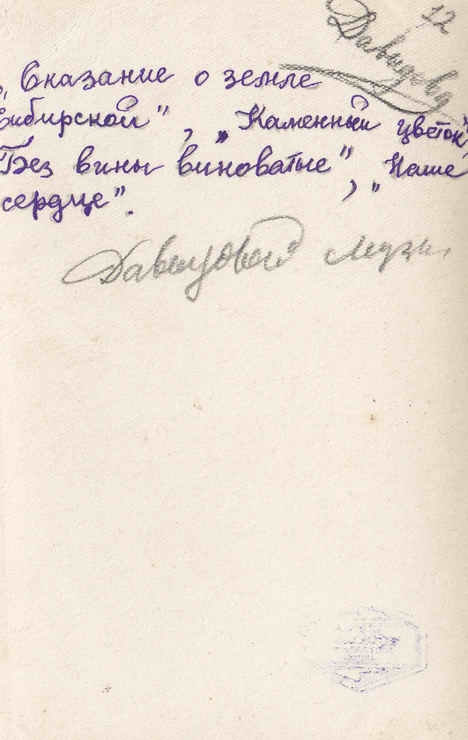 12
Давыдова
„Сказание о земле
Сибирской", „Каменный цветок"
"Без вины виноватые", "Наше
сердце".
Давыдовой Музы